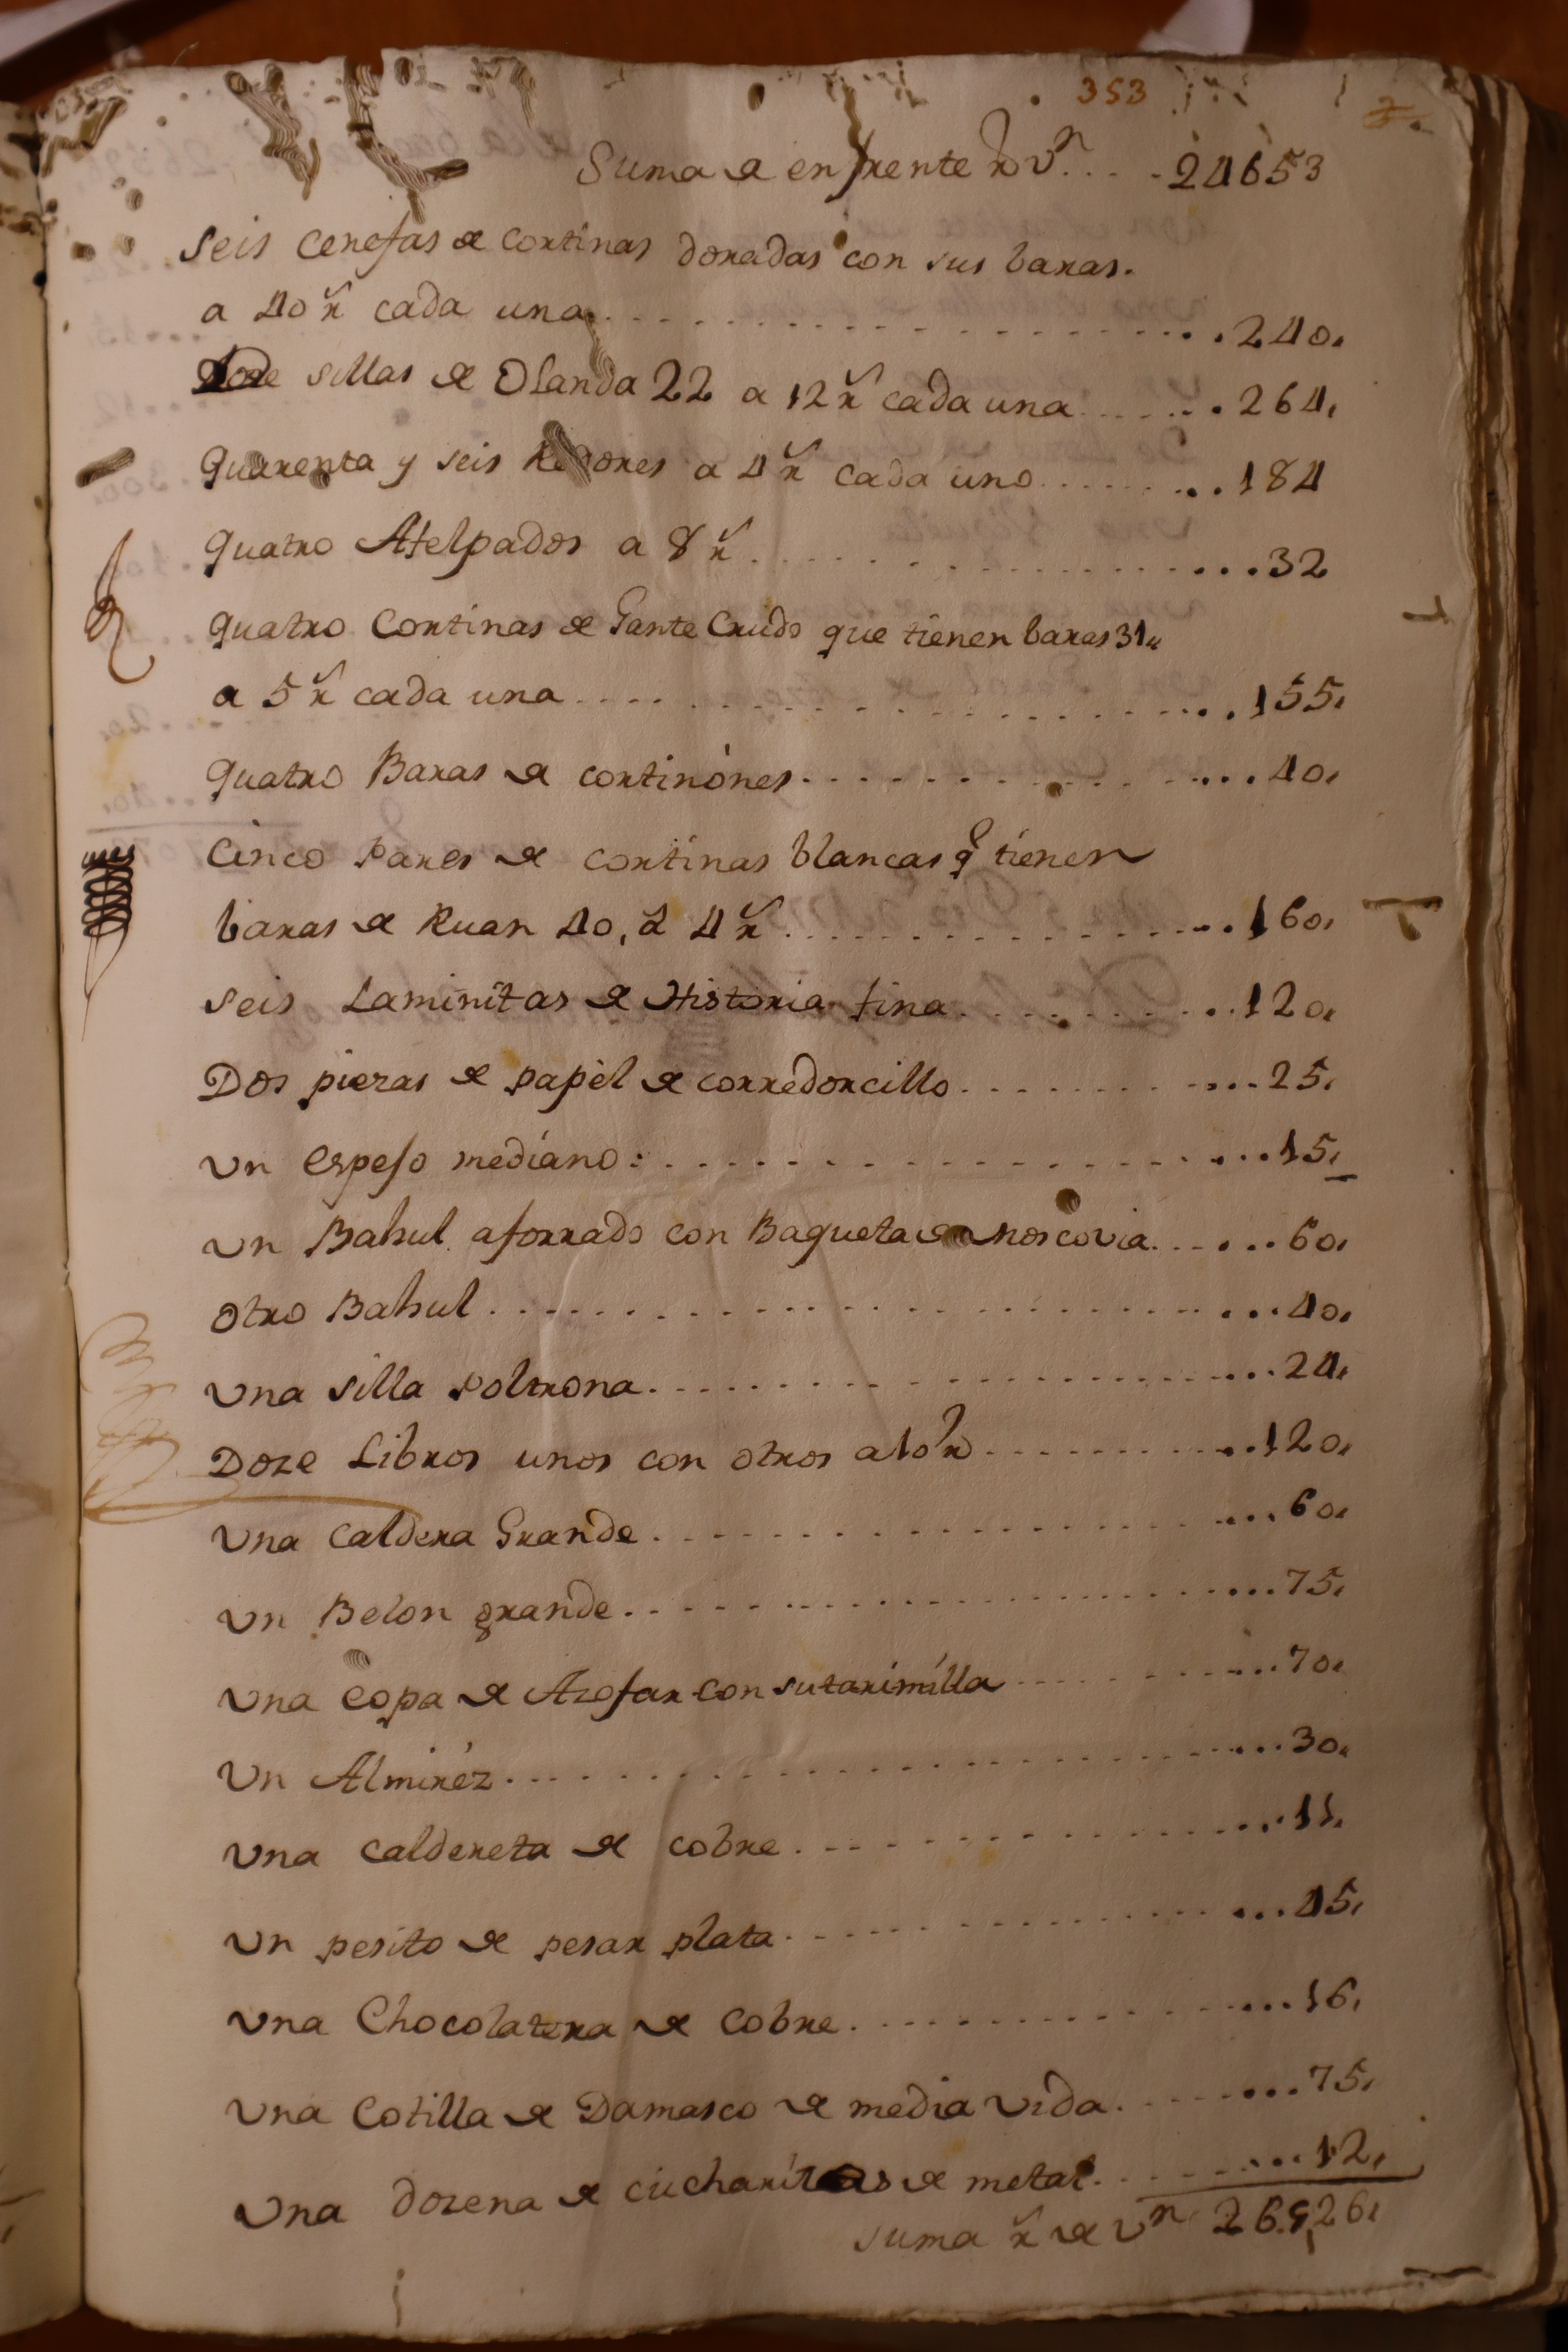 353
Suma de enfrente Rs vn .... 24653
Seis Cenefas de Cortinas doradas con sus baras.
a 40 rs cada una ... 240,
sillas de Olanda 22 a 12 rs cada una ... 264,
Quarenta y seis a 4 rs cada uno ... 184
Quatro Afelpados a 8 rs ... 32
Quatro Cortinas de Gante Crudo que tienen baras 31,,
a 5 rs cada una ... 155,
Quatro Baras de cortinónes ... 40,
Cinco Pares de Cortinas blancas q tienen
baras de Ruan 40, á 4 rs ... 160,
Seis Laminitas de Historia fina ... 120,
Dos piezas de papèl de corredorcillo ... 25,
Un Espejo mediano: ... 15,
Un Bahul aforrado con Baqueta de Moscovia ... 60,
Otro Bahul ... 40,
Una silla Poltrona ... 24,
Doze Libros unos con otros a 10 rs ... 120,
Una Caldera Grande ... 60,
Un Belon grande ... 75,
Una Copa de Azofar con su tarimilla ... 70,
Un Almiréz ... 30,
Una Caldereta de cobre ... 11,
Un pesito de pesar plata ... 45,
Una Chocolatera de Cobre ... 16,
Una Cotilla de Damasco de media vida ... 75,
Una dozena de cucharitas de metal ... 12,
Suma rs de vn 26526,